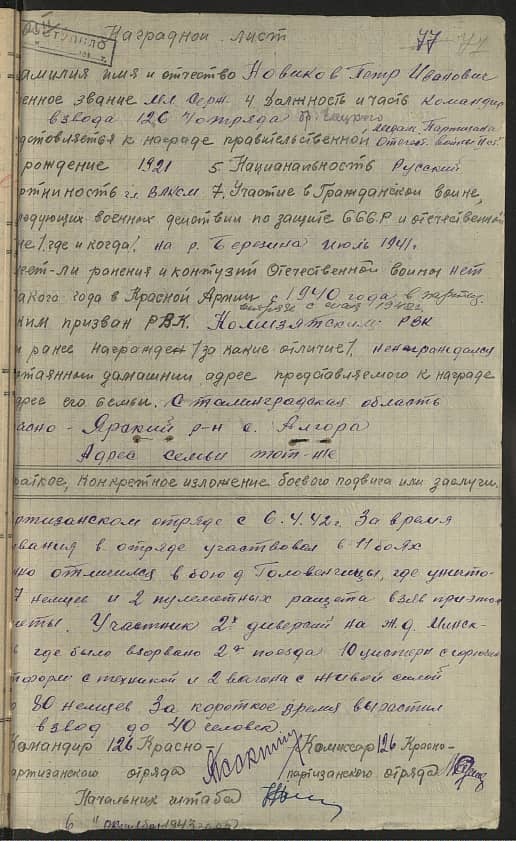 Наградной лист 77
амилия имя и отчество Новиков Петр Иванович
енное звание мл. серж. 4 Должность и часть командир
взвода 126 го отряда
дставляется к награде правительственной медаль "Партизана
Отечест. войны"
рождение 1921 5 Национальность Русский
ртийность чл. ВЛКСМ 7. Участие в Гражданской войне,
едующих военных действии по защите СССР и отечественной
не /где и когда/. на р. Березина июль 1941г.
еет-ли ранения и контузий Отечественной войны нет
акого года в Красной Армии с 1940 года в партиз.
отряде с мая 1942г.
ким призван РВК. РВК
и ранее награжден /за какие отличие/. ненаграждался
стоянный домашний адрес представляемого к награде
дрес его семьи. Сталинградская область
асно-Ярский р-н с. Алгора
Адрес семьи тот-же
раткое, конкретное изложение боевого подвига или заслуги.
ртизанском отряде с 6.4.42г. За время
ывания в отряде участвовал в 11 боях
нко отличился в бою д. Головенчицы, где уничто-
7 немцев и 2 пулеметных расчета взяв при этом
леты. Участник 2х диверсий на ж.д. Минск-
где было взорвано 2а поезда 10 цистерн с горючим
тформ с техникой и 2 вагона с живой силой
о 80 немцев За короткое время вырастил
взвод до 40 человек.
Командир 126 Красно- Комиссар 126 Красно-
артизанского отряда партизанского отряда
Начальник штаба
6 " октября 1943 года